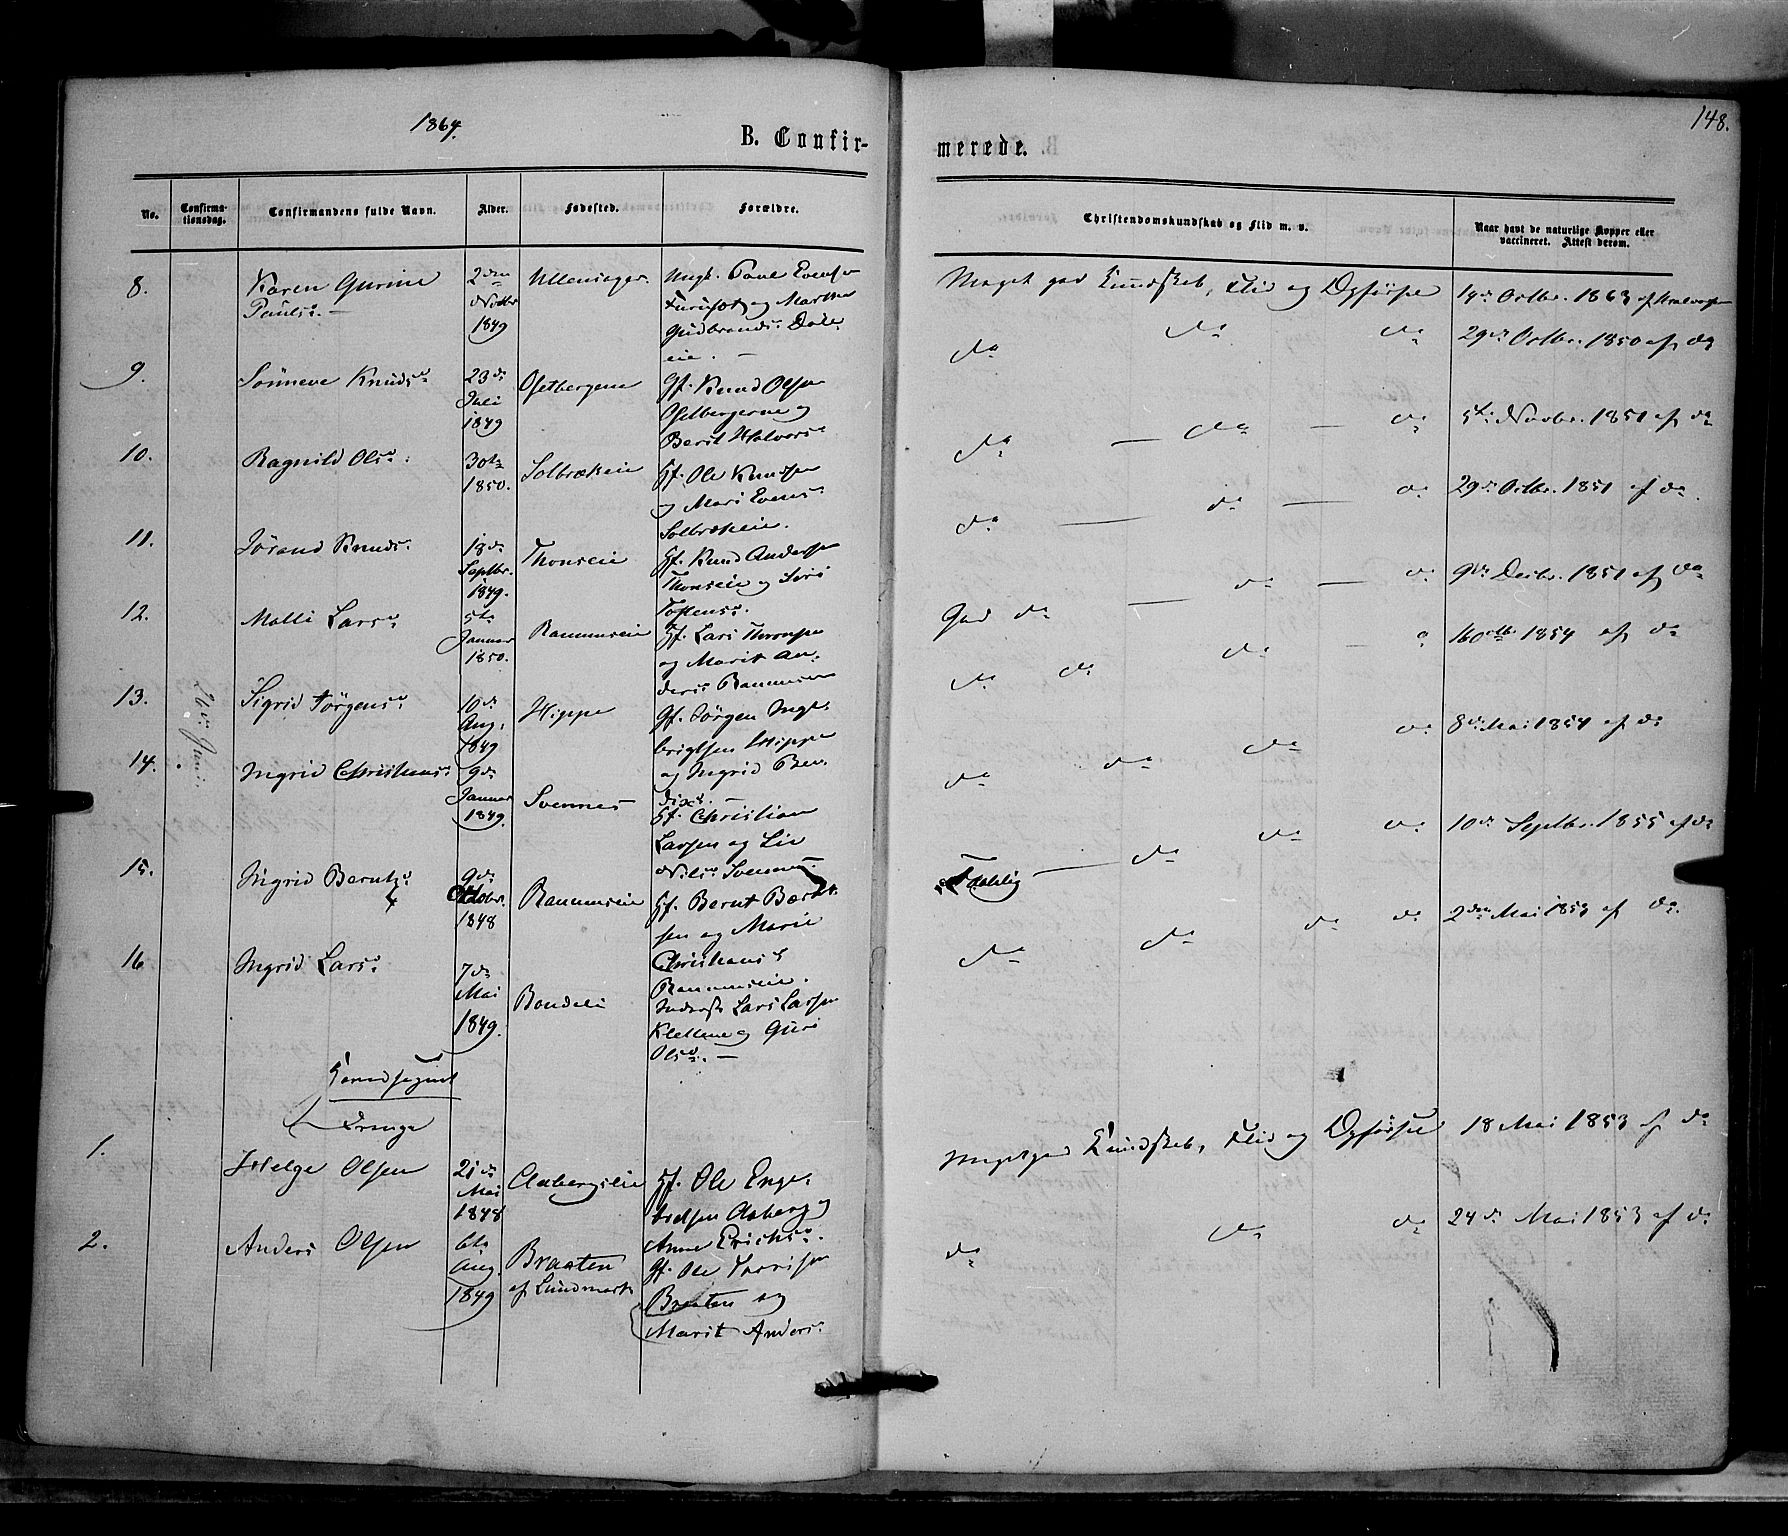 1864.
148.
B. Confir-
merede.
No.
Confirma-
tionsdag.
Confirmandens fulde Navn.
Alder.
Fødested.
Forældre.
Christendomskundskab og Flid m. v.
Naar havt de naturlige Kopper eller
vaccineret. Attest derom.
8.
Karen Gurine
Pauls:
2den
Novbr
1849
Ullensager.
Ungk. Paul Evensen
og Marthe
Gudbrands: Dale
eie.
Meget god Kundskab, Flid og Opførsel
14de Octbr. 1863 af
9.
Sönneve Knuds:
23de
Juli
1849
Ofstbergene
Gf. Knud Olsen
Ofstbergene og
Berit Halvors:
do do do
29de Octbr. 1850 af do
10.
Ragnild Ols:
30te
1850.
Solbrækeie
Hf. Ole Knudsen
og Mari Evens:
Solbrækeie.
do do do
5te Novbr. 1851 af do
11.
Jörand Knuds:
18de
Septbr.
1849.
Thonseie
Hf. Knud Andersen
Thonseie og Siri
Tostens:
do do do
29de Octbr. 1851 af do
12.
Malli Lars:
5te
Januar
1850.
Ranumseie
Hf. Lars
og Marit An-
ders: Ranumseie
God do do do
9de Decbr. 1851 af do
13.
Sigrid Jörgens:
10de
Aug.
1849
Hippe
Gf. Jörgen Inge-
brigtsen Hippe
og Ingrid Ben-
dixs:
do do do
16 Octbr. 1854 af do
2de Juni
14.
Ingrid Christians:
9de
Januar
1849.
Svennes
Hf. Christian
Larsen og Liv
Nils: Svennes
do do do do
8de Mai 1854 af do
15.
Ingrid Bernts:
9de
Octobr.
1848
Ranumseie
Hf. Bernt
sen og Marie
Christians:
Ranumseie.
Taalelig do do do
10de Septbr. 1855 af do
16
Ingrid Lars:
7de
Mai
1849.
Bondeli
Inderst Lars Larsen
Klettene og Guri
Ols:
do do do do
2den Mai 1853 af do.
Drenge
1.
Helge Olsen
21de
Mai
1848
Aabergseie
Hf. Ole Enge-
bretsen Aaberg og
Anne Erichs:
Megetgod Kundskab, Flid og Opførsel
18 Mai 1853 af do
2.
Anders Olsen
6te
Aug.
1849
Braaten
af Lundmark
Gf. Ole
Braaten og
Marit Anders:
do do do
24de Mai 1853 af do